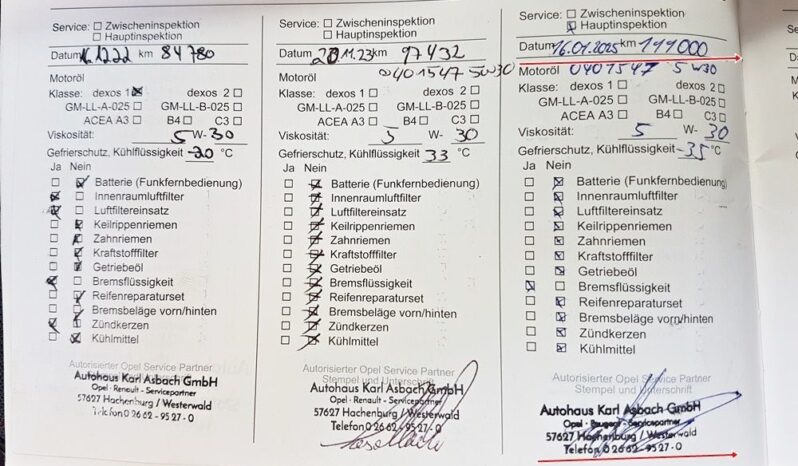 Service: Zwischeninspektion
Hauptinspektion
Datum 16.12.22 km 84780
Motoröl
Klasse: dexos 1 dexos 2
GM-LL-A-025 GM-LL-B-025
ACEA A3 B4 C3
Viskosität: 5 W- 30
Gefrierschutz, Kühlflüssigkeit -30 °C
Ja Nein
Batterie (Funkfernbedienung)
Innenraumluftfilter
Luftfiltereinsatz
Keilrippenriemen
Zahnriemen
Kraftstofffilter
Getriebeöl
Bremsflüssigkeit
Reifenreparaturset
Bremsbeläge vorn/hinten
Zündkerzen
Kühlmittel
Autorisierter Opel Service Partner
Autohaus Karl Asbach GmbH
Opel · Renault - Servicepartner
57627 Hachenburg / Westerwald
Telefon 0 26 62 - 95 27 - 0
Service: Zwischeninspektion
Hauptinspektion
Datum 20 11.23 km 97432
Motoröl 0401547 5W30
Klasse: dexos 1 dexos 2
GM-LL-A-025 GM-LL-B-025
ACEA A3 B4 C3
Viskosität: 5 W- 30
Gefrierschutz, Kühlflüssigkeit 33 °C
Ja Nein
Batterie (Funkfernbedienung)
Innenraumluftfilter
Luftfiltereinsatz
Keilrippenriemen
Zahnriemen
Kraftstofffilter
Getriebeöl
Bremsflüssigkeit
Reifenreparaturset
Bremsbeläge vorn/hinten
Zündkerzen
Kühlmittel
Autorisierter Opel Service Partner
Stempel und Unterschrift
Autohaus Karl Asbach GmbH
Opel · Renault - Servicepartner
57627 Hachenburg / Westerwald
Telefon 0 26 62 - 95 27 - 0
Service: Zwischeninspektion
Hauptinspektion
Datum 16.01.2025 km 111000
Motoröl 0401547 5 W30
Klasse: dexos 1 dexos 2
GM-LL-A-025 GM-LL-B-025
ACEA A3 B4 C3
Viskosität: 5 W- 30
Gefrierschutz, Kühlflüssigkeit -35 °C
Ja Nein
Batterie (Funkfernbedienung)
Innenraumluftfilter
Luftfiltereinsatz
Keilrippenriemen
Zahnriemen
Kraftstofffilter
Getriebeöl
Bremsflüssigkeit
Reifenreparaturset
Bremsbeläge vorn/hinten
Zündkerzen
Kühlmittel
Autorisierter Opel Service Partner
Stempel und Unterschrift
Autohaus Karl Asbach GmbH
Opel · Peugeot - Servicepartner
57627 Hachenburg / Westerwald
Telefon 0 26 62 - 95 27 - 0